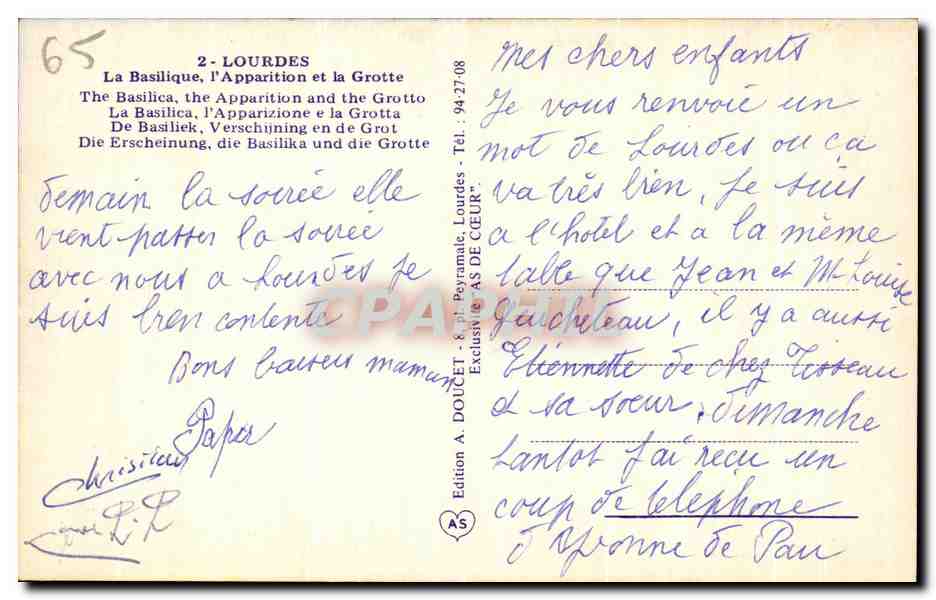 65
2 - LOURDES
La Basilique, l'Apparition et la Grotte
The Basilica, the Apparition and the Grotto
La Basilica, l'Apparizione e la Grotta
De Basiliek, Verschijning en de Grot
Die Erscheinung, die Basilika und die Grotte
Mes chers enfants
Je vous renvoie un
mot de Lourdes ou ça
va très bien, je suis
a l'hotel et a la même
table que Jean et M. Louise
Guicheteau, il y a aussi
Etiennette de chez Tisseau
et sa soeur, dimanche
tantot j'ai reçu un
coup de telephone
d'Yvonne de Pau
demain la soirée elle
vient passer la soirée
avec nous a Lourdes je
suis bien contente
Bons baisers maman
Papa
christian
L. L
Edition A. DOUCET - 8, pl. Peyramale, Lourdes - Tél. : 94-27-08
Exclusivité "AS DE CŒUR".
AS
CPAPHIL